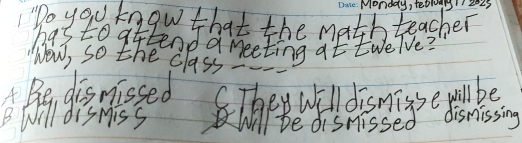 Date: Monday, february 17 2025
1 "Do you know that the math teacher
has to attend a meeting at twelve?"
"Wow, so the class ----
A Be dismissed C They will dismisse will be
B Will dismiss D Will be dismissed dismissing